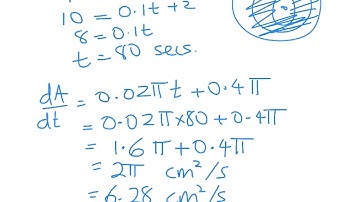 10 = 0.1t + 2
8 = 0.1t
t = 80 secs.
dA/dt = 0.02πt + 0.4π
= 0.02π×80 + 0.4π
= 1.6π + 0.4π
= 2π cm²/s
= 6.28 cm²/s